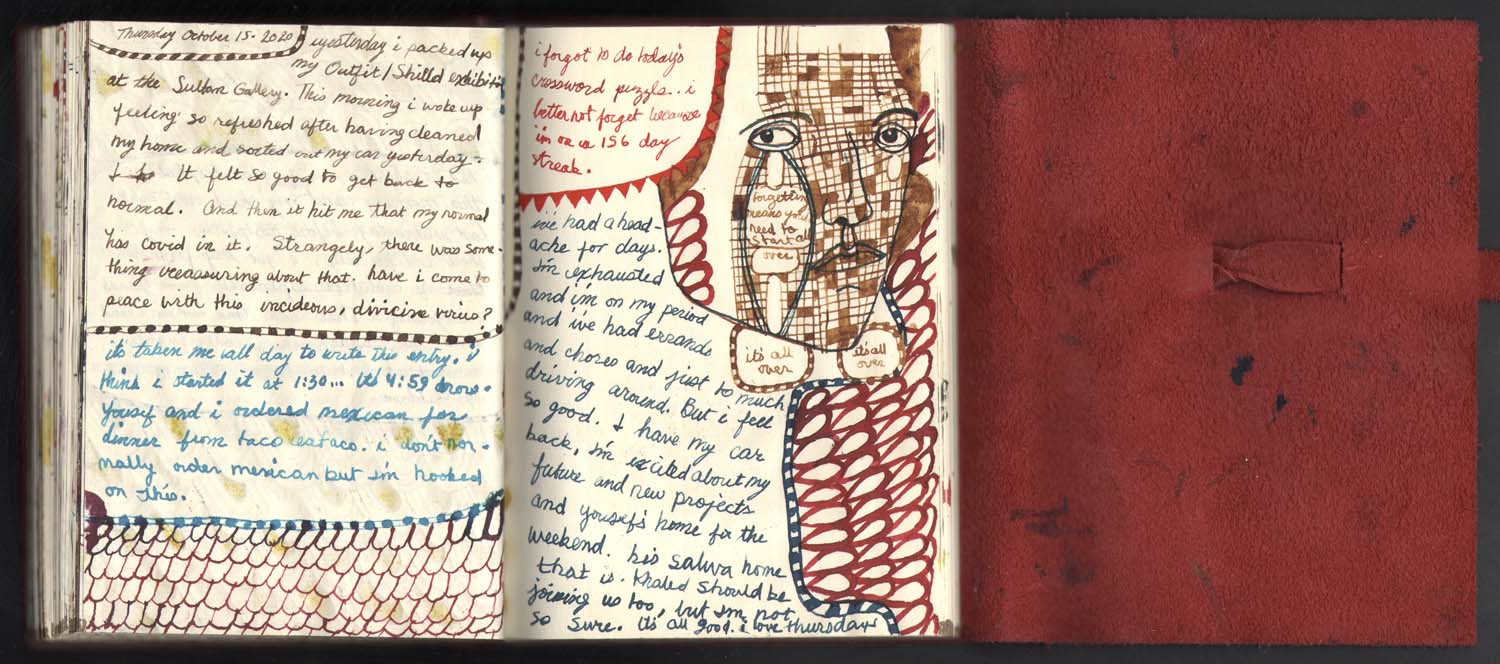 Thursday October 15 - 2020
yesterday i packed up
my Outfit / Shilld exhibit
at the Sultan Gallery. This morning i woke up
feeling so refreshed after having cleaned
my home and sorted out my car yesterday.
It felt so good to get back to
normal. And then it hit me that my normal
has covid in it. Strangely, there was some-
thing reeassuring about that. have i come to
peace with this incideous, divicive virus?
it's taken me all day to write this entry. i
think i started it at 1:30... it's 4:59 now.
Yousef and i ordered mexican for
dinner from taco eataco. i don't nor-
mally order mexican but i'm hooked
on this.
i forgot to do today's
crossword puzzle.. i
better not forget because
i'm on a 156 day
streak.
i've had a head-
ache for days.
I'm exhausted
and i'm on my period
and i've had errands
and chores and just to much
driving around. But i feel
so good. I have my car
back, I'm excited about my
future and new projects
and yousef's home for the
weekend. his Salwa home
that is. Khaled should be
joining us too, but I'm not
so sure. it's all good. i love thursday
forgettin
means you
need to
start all
over
it's all
over
it's all
over